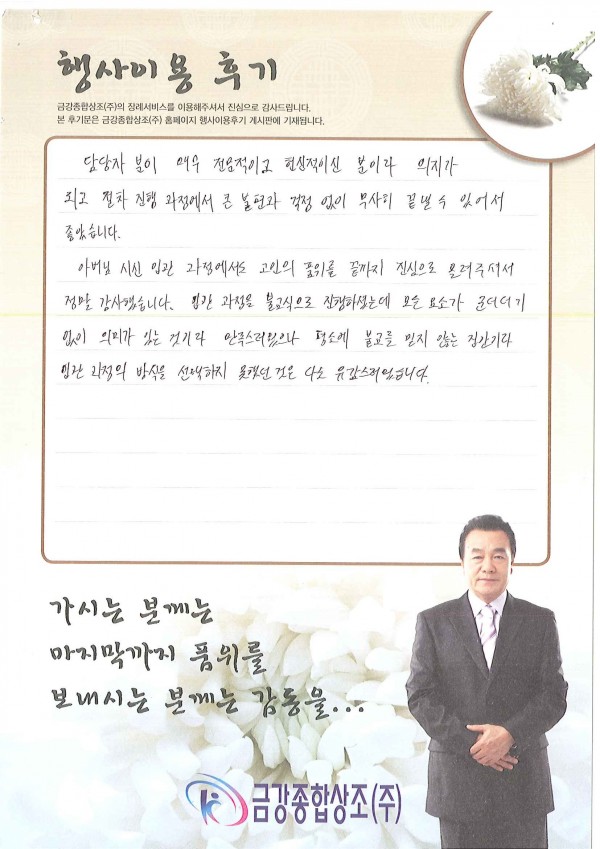 행사이용 후기
금강종합상조(주)의 장례서비스를 이용해주셔서 진심으로 감사드립니다.
본 후기문은 금강종합상조(주) 홈페이지 행사이용후기 게시판에 기재됩니다.
담당자 분이 매우 전문적이고 헌신적이신 분이라 의지가
되고 절차 진행 과정에서 큰 불편과 걱정 없이 무사히 끝낼 수 있어서
좋았습니다.
아버님 시신 입관 과정에서도 고인의 품위를 끝까지 진심으로 모려주셔서
정말 감사했습니다. 입관 과정을 불교식으로 진행하셨는데 모든 요소가 군더더기
없이 의미가 있는 것이라 만족스러웠으나 평소에 불교를 믿지 않는 집안이라
입관 과정의 방식을 선택하지 못했던 것은 다소 유감스러웠습니다.
가시는 분께는
마지막까지 품위를
보내시는 분께는 감동을...
금강종합상조(주)